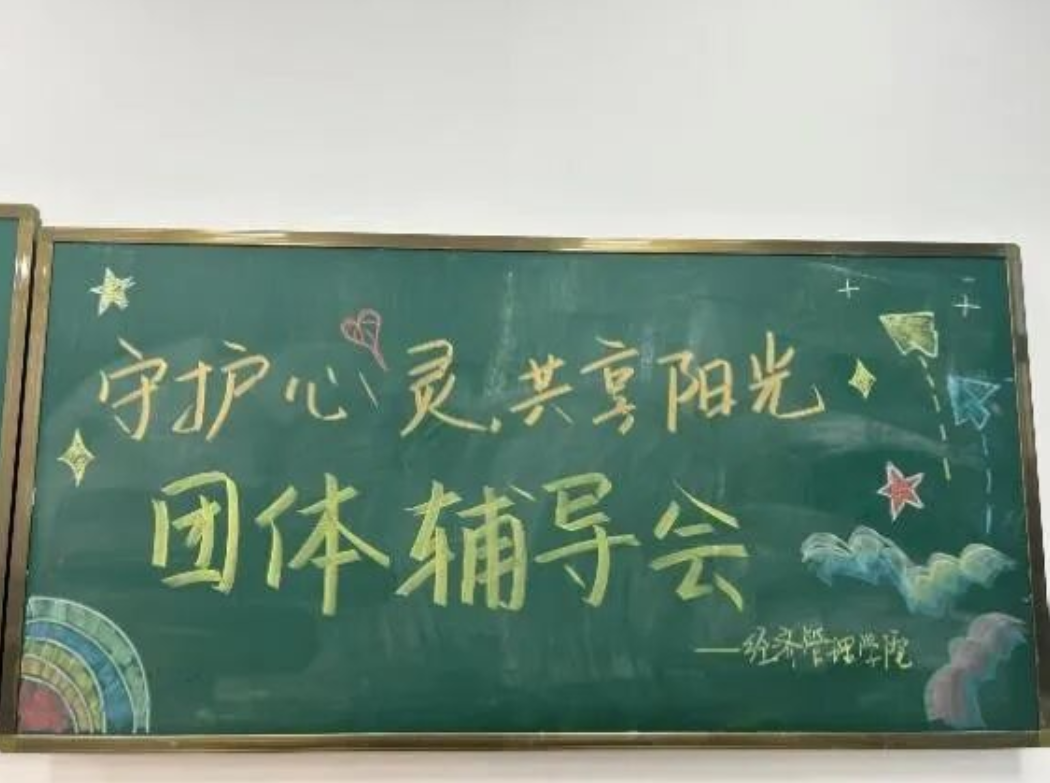 守护心灵,共享阳光
团体辅导会
——经济管理学院